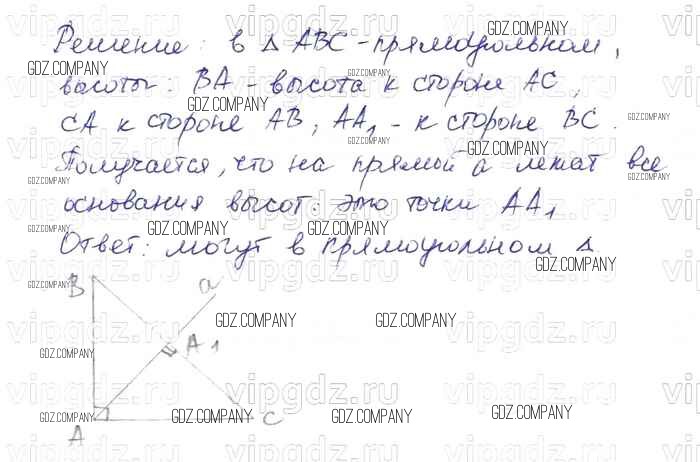 Решение: в Δ ABC - прямоугольном,
высоты: BA - высота к стороне AC,
CA к стороне AB, AA₁ - к стороне BC.
Получается, что на прямой a лежат все
основания высот: это точки AA₁
Ответ: могут в прямоугольном Δ
B a
A₁
A C
GDZ.COMPANY
vipgdz.ru